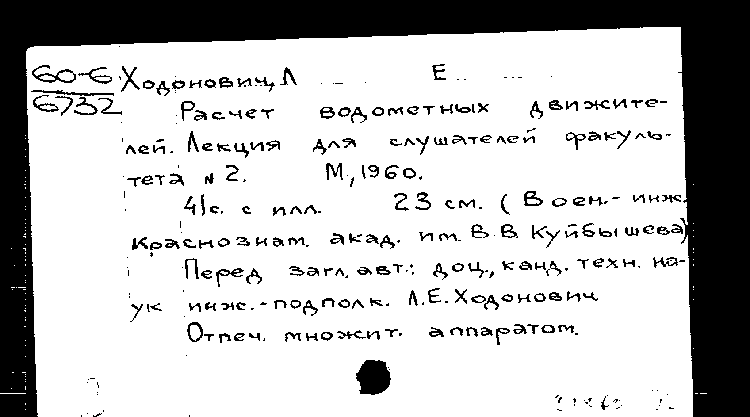 60-6 Ходонович, Л Е
6732
Расчет водометных движите-
лей. Лекция для слушателей факуль-
тета № 2. М, 1960.
41с. с илл. 23 см. (Воен.- инж.
краснознам. акад. им. В. В. Куйбышева)
Перед загл. авт.: доц., канд. техн. на-
ук инж.-подполк. Л. Е. Ходонович
Отпеч. множит. аппаратом.